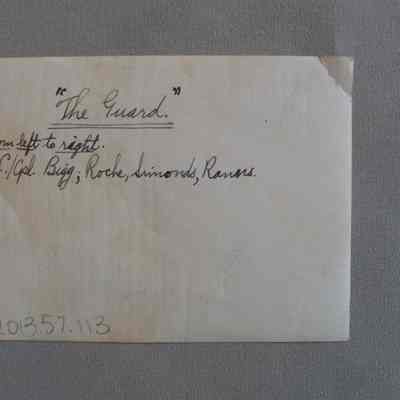 "The Guard."
om left to right.
/Cpl. Bigg; Roche, Simonds, Raners.
2013.57.113